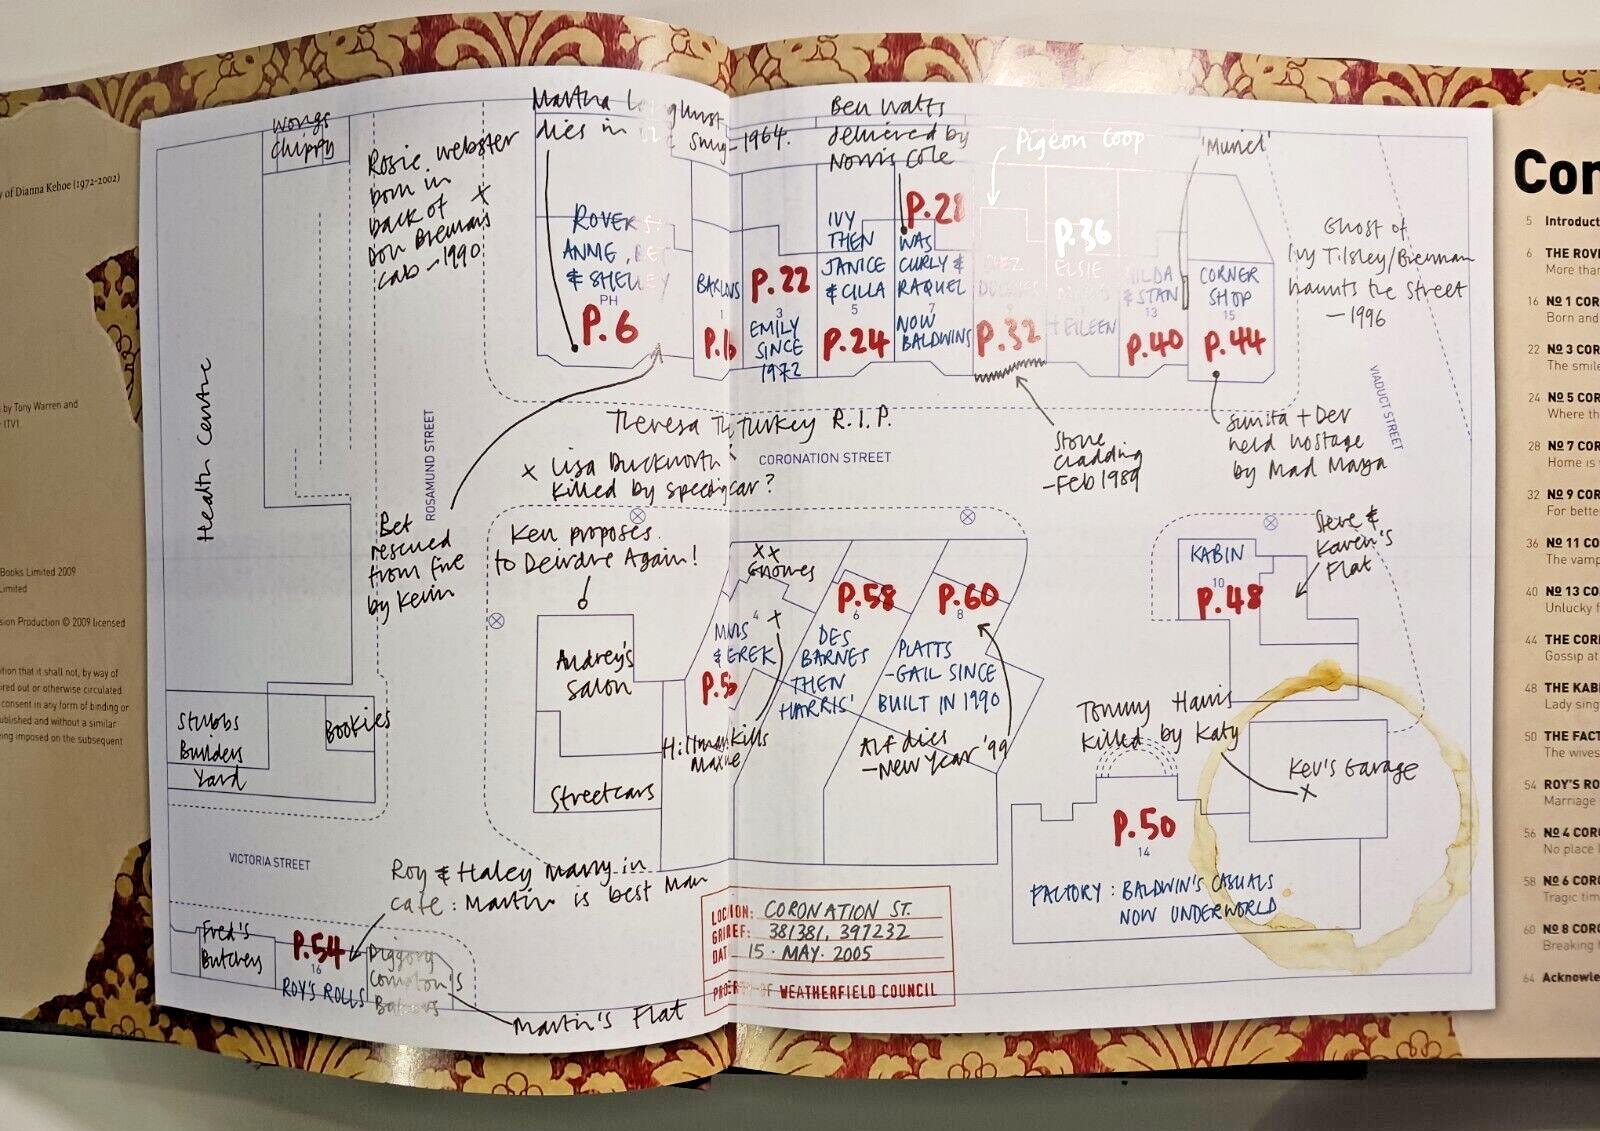 y of Dianna Kehoe (1972-2002)
by Tony Warren and
ITV1.
Books Limited 2009
Limited
sion Production © 2009 licensed
ition that it shall not, by way of
ired out or otherwise circulated
consent in any form of binding or
ublished and without a similar
ing imposed on the subsequent
Wongs
Chippy
Rosie Webster
born in
back of X
Don Brennan's
cab - 1990
Martha Longhurst
dies in
Snug - 1964.
Ben Watts
delivered by
Norris Cole
Pigeon Coop
'Muriel'
Ghost of
Ivy Tilsley/Brennan
haunts the Street
- 1996
ROVERS
ANNIE, BET
& SHELLEY
PH
P.6
BARLOWS
1
P.16
P.22
3
EMILY
SINCE
1972
IVY
THEN
JANICE
& CILLA
5
P.24
P.28
WAS
CURLY &
RAQUEL
7
NOW
BALDWINS
9
P.32
P.36
ELSIE
+ EILEEN
HILDA
& STAN
13
P.40
CORNER
SHOP
15
P.44
Health Centre
ROSAMUND STREET
VIADUCT STREET
Theresa The Turkey R.I.P.
CORONATION STREET
X Lisa Duckworth
killed by speeding car?
Stone
cladding
- Feb 1989
Sunita + Dev
held hostage
by Mad Maya
Bet
rescued
from fire
by Kevin
Ken proposes
to Deirdre Again!
XX
Gnomes
4
X
MAVIS
& DEREK
P.56
P.58
6
DES
BARNES
THEN
HARRIS'
P.60
8
PLATTS
- GAIL SINCE
BUILT IN 1990
KABIN
10
P.48
Steve &
Karen's
Flat
Audrey's
Salon
Streetcars
Hillman Kills
Maxine
Alf dies
- New Year '99
Tommy Harris
killed by Katy
Kev's Garage
X
Stubbs
Builders
Yard
Bookies
P.50
14
FACTORY: BALDWIN'S CASUALS
NOW UNDERWORLD
VICTORIA STREET
Roy & Haley marry in
cafe: Martin is best man
Fred's
Butchers
P.54
16
ROY'S ROLLS
Diggory
Compton's
Bakers
Martin's Flat
LOCATION: CORONATION ST.
GRID REF: 381381, 397232
DATE 15. MAY. 2005
PROPERTY OF WEATHERFIELD COUNCIL
Con
5 Introduct
6 THE ROVE
More than
16 Nº 1 COR
Born and
22 Nº 3 COR
The smile
24 Nº 5 COR
Where th
28 Nº 7 COR
Home is
32 Nº 9 COR
For bette
36 Nº 11 CO
The vamp
40 Nº 13 CO
Unlucky f
44 THE CORN
Gossip at
48 THE KAB
Lady sing
50 THE FACT
The wives
54 ROY'S RO
Marriage
56 Nº 4 COR
No place l
58 Nº 6 COR
Tragic tim
60 Nº 8 COR
Breaking
64 Acknowle